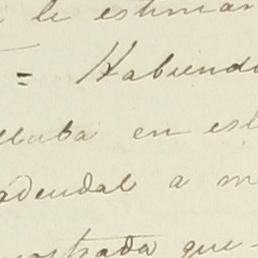 i le estimar
= Habiend
llaba en est
adeudal a m
ostrada que